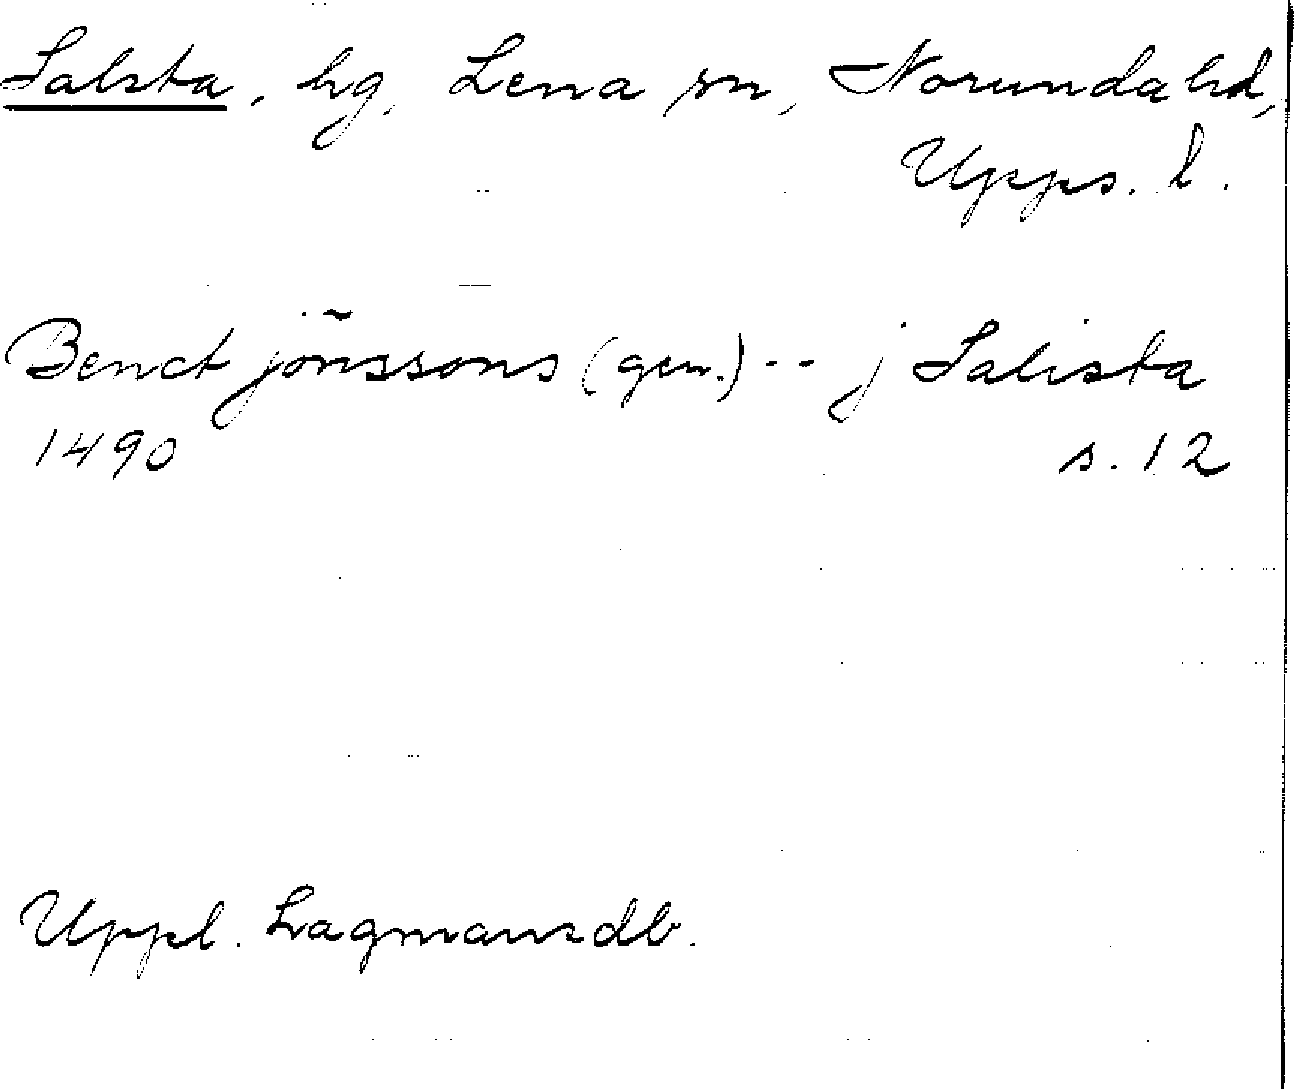 Salsta, hg, Lena sn, Norunda hd,
Upps. l.
Benct jönssons (gen.) -- j Salista
1490 s. 12
Uppl. Lagmansdb.